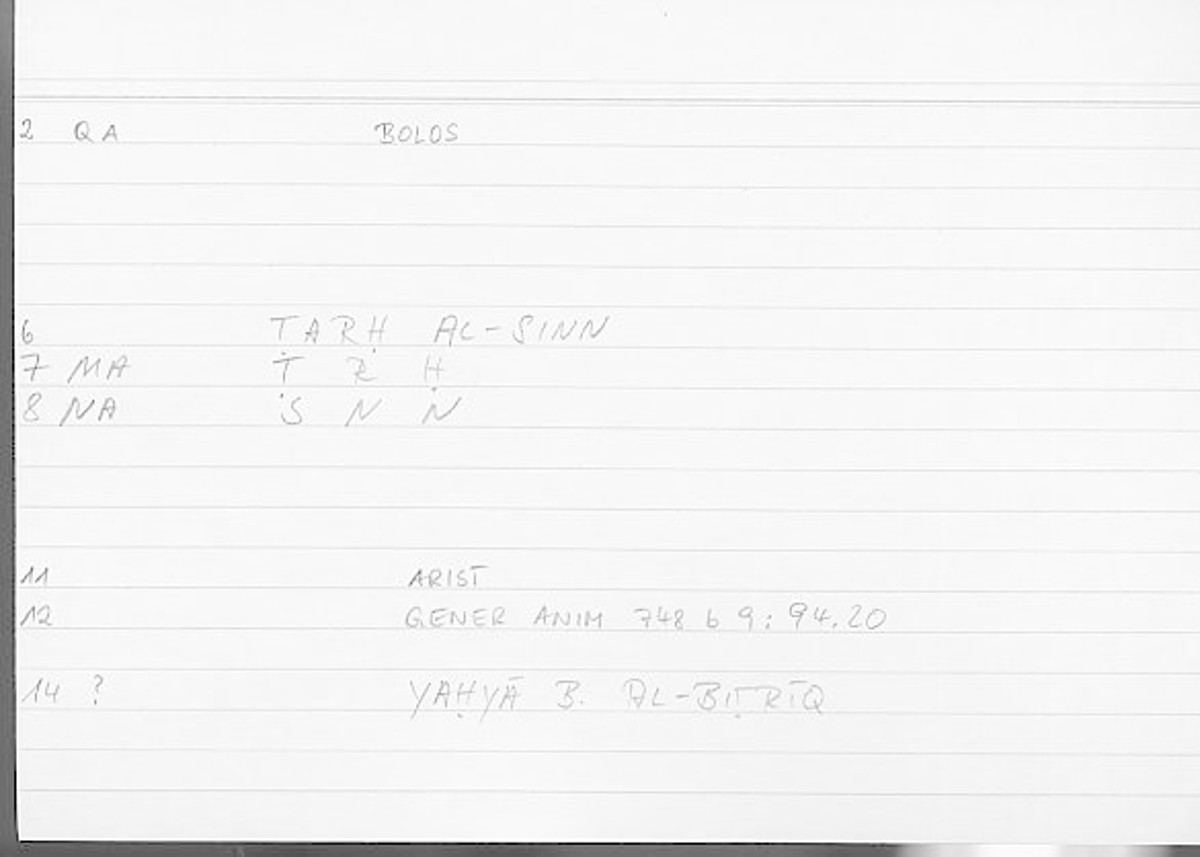 2 QA BOLOS
6 ṬARḤ AL-SINN
7 MA Ṭ R Ḥ
8 NA S N N
11 ARIST
12 GENER ANIM 748 b 9: 94.20
14 ? YAḤYĀ B. AL-BIṬRĪQ